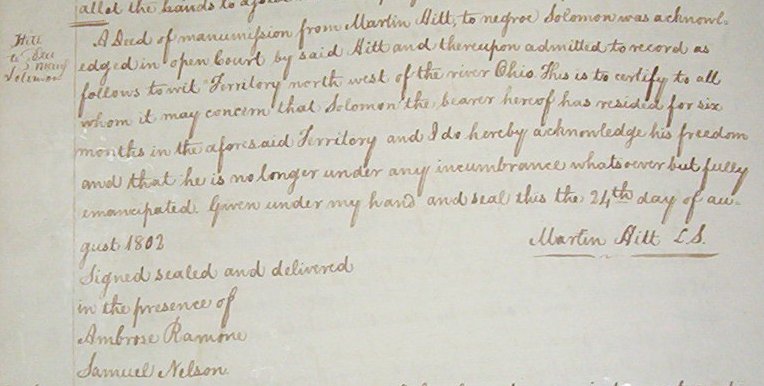 allot the hands to
Hitt
to Deed
Solomon
A Deed of manumission from Martin Hitt, to negroe Solomon was acknowl-
edged in open Court by said Hitt and thereupon admitted to record as
follows to wit "Territory north west of the river Ohio This is to certify to all
whom it may concern that Solomon the bearer hereof has resided for six
months in the aforesaid Territory and I do hereby acknowledge his freedom
and that he is no longer under any incumbrance whatsoever but fully
emancipated. Given under my hand and seal this the 24th day of au-
gust 1802
Martin Hitt L.S.
Signed sealed and delivered
in the presence of
Ambrose Ramone
Samuel Nelson